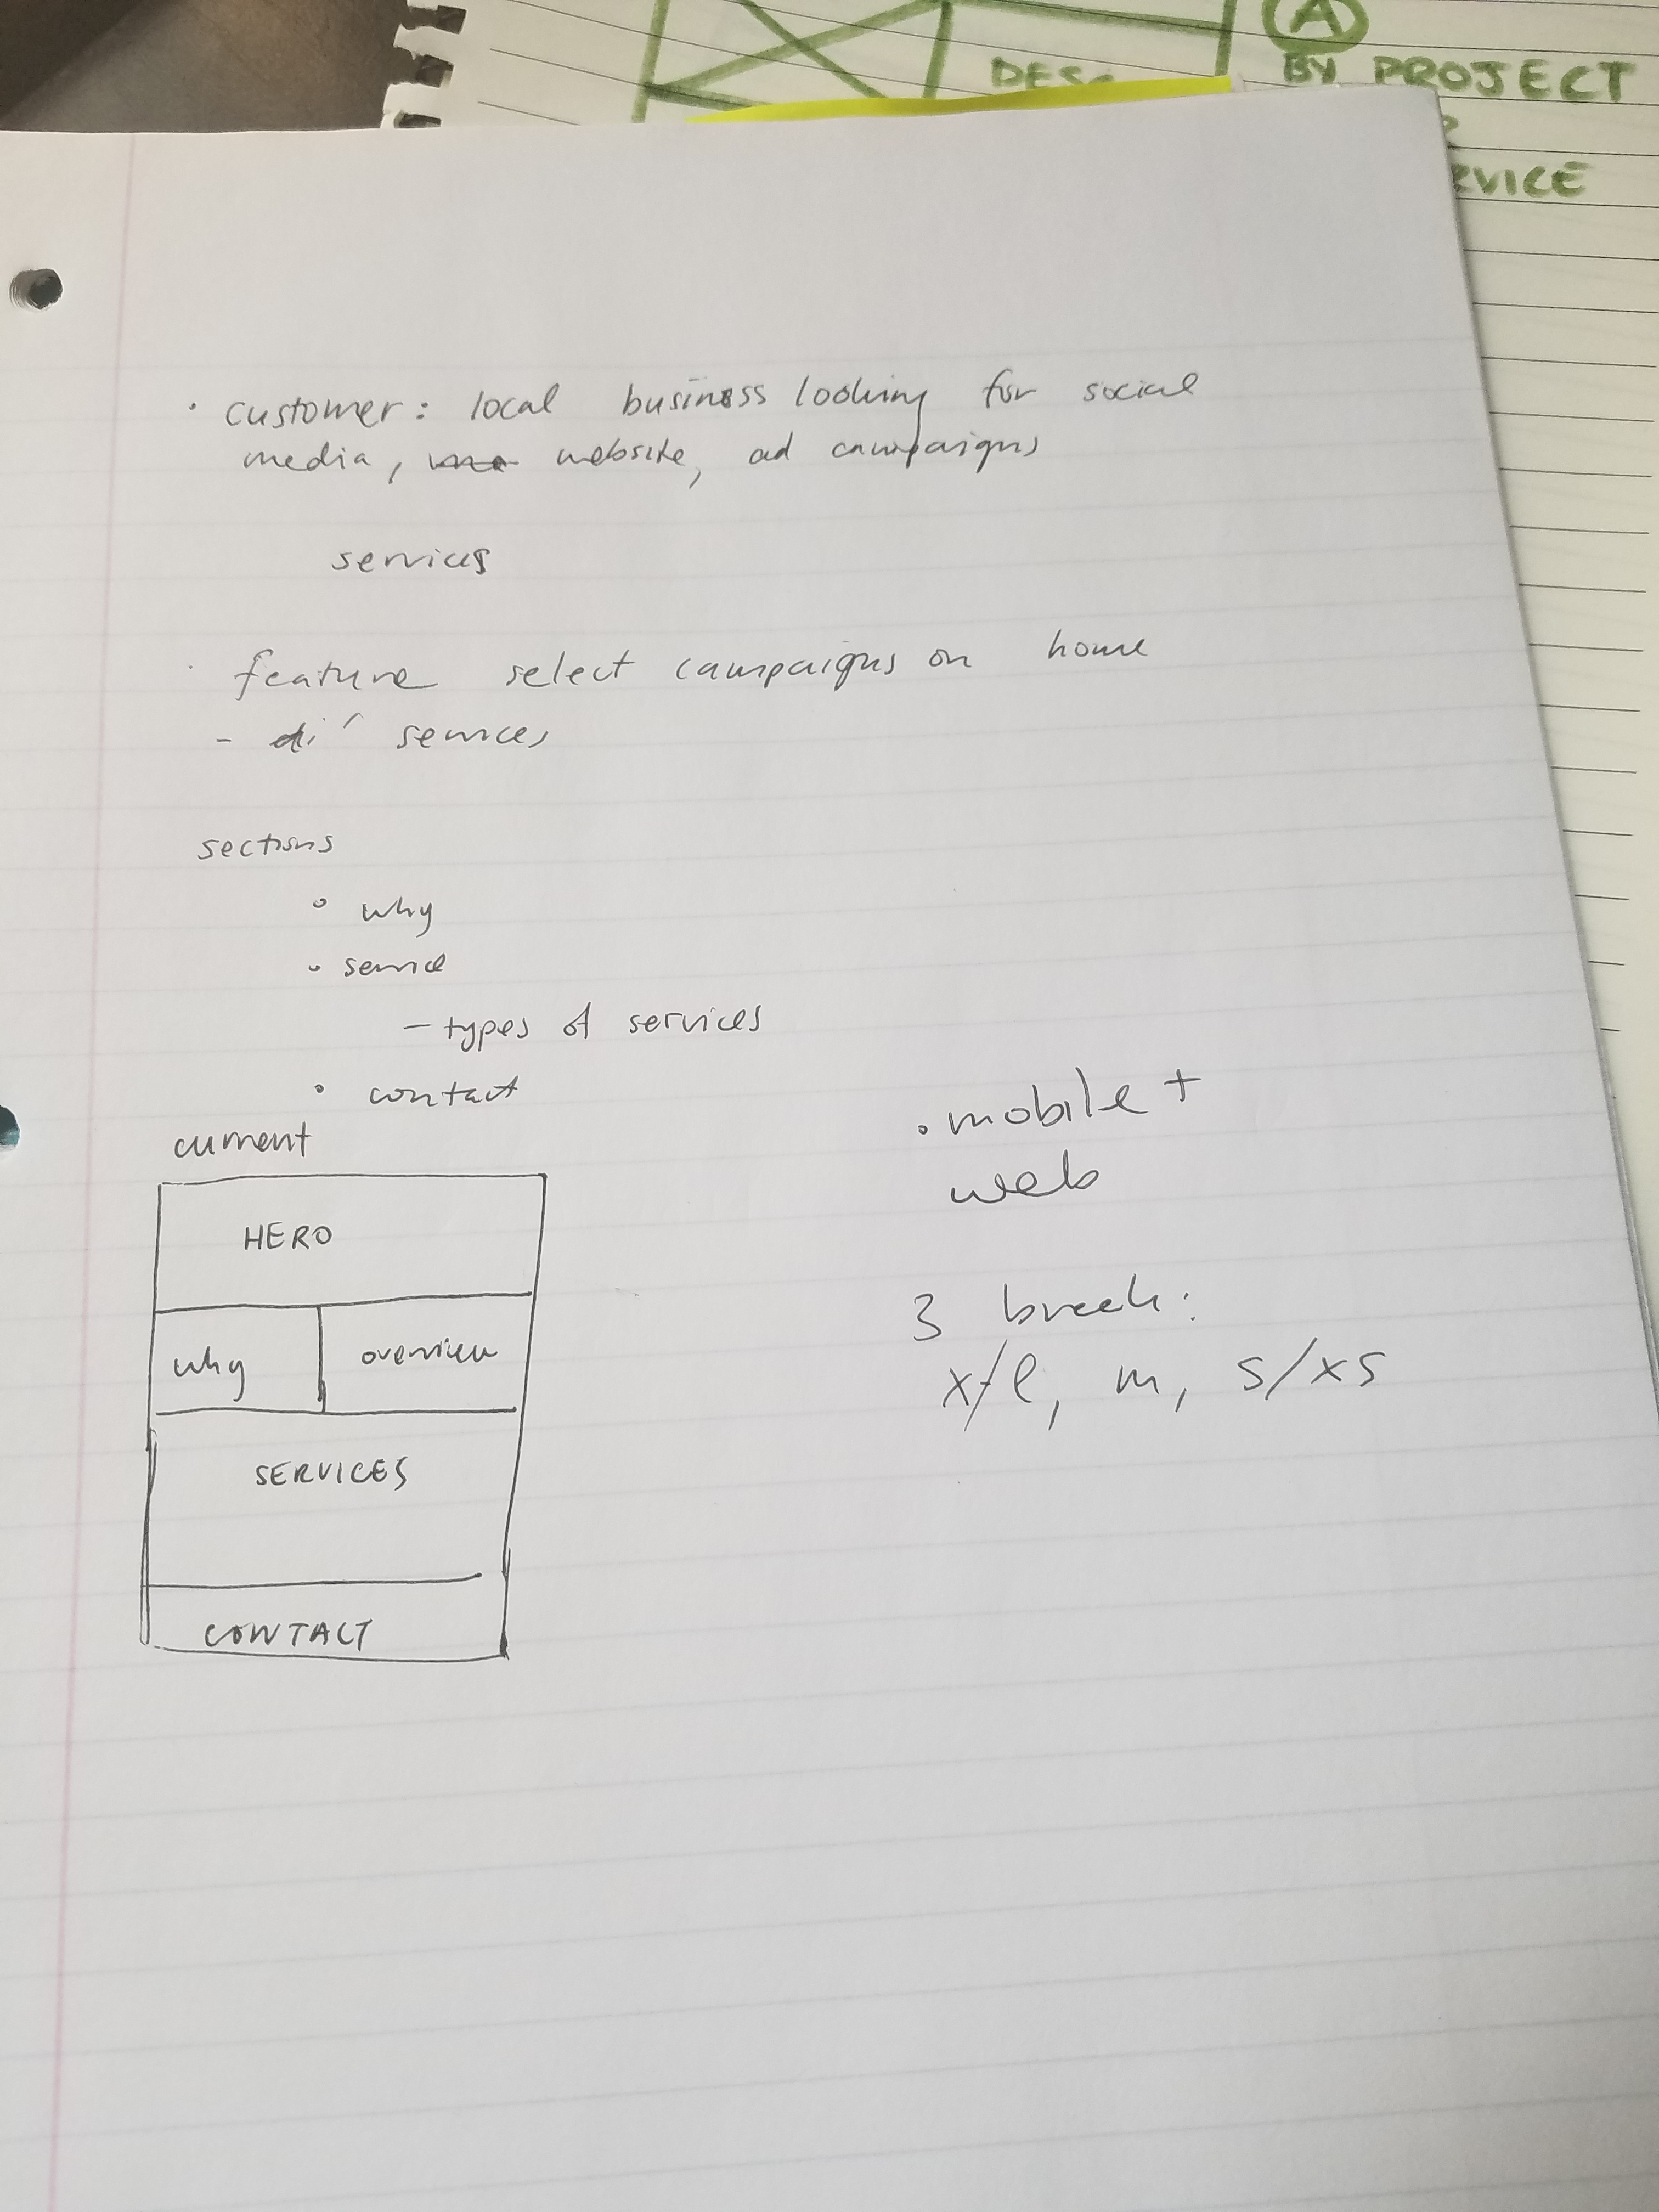 A
DESC
BY PROJECT
RVICE
· customer: local business looking for social
media, website, ad campaigns
services
· feature select campaigns on home
- services
sections
◦ why
◦ service
- types of services
• contact
current
HERO
why overview
SERVICES
CONTACT
• mobile +
web
3 break:
x/l, m, s/xs